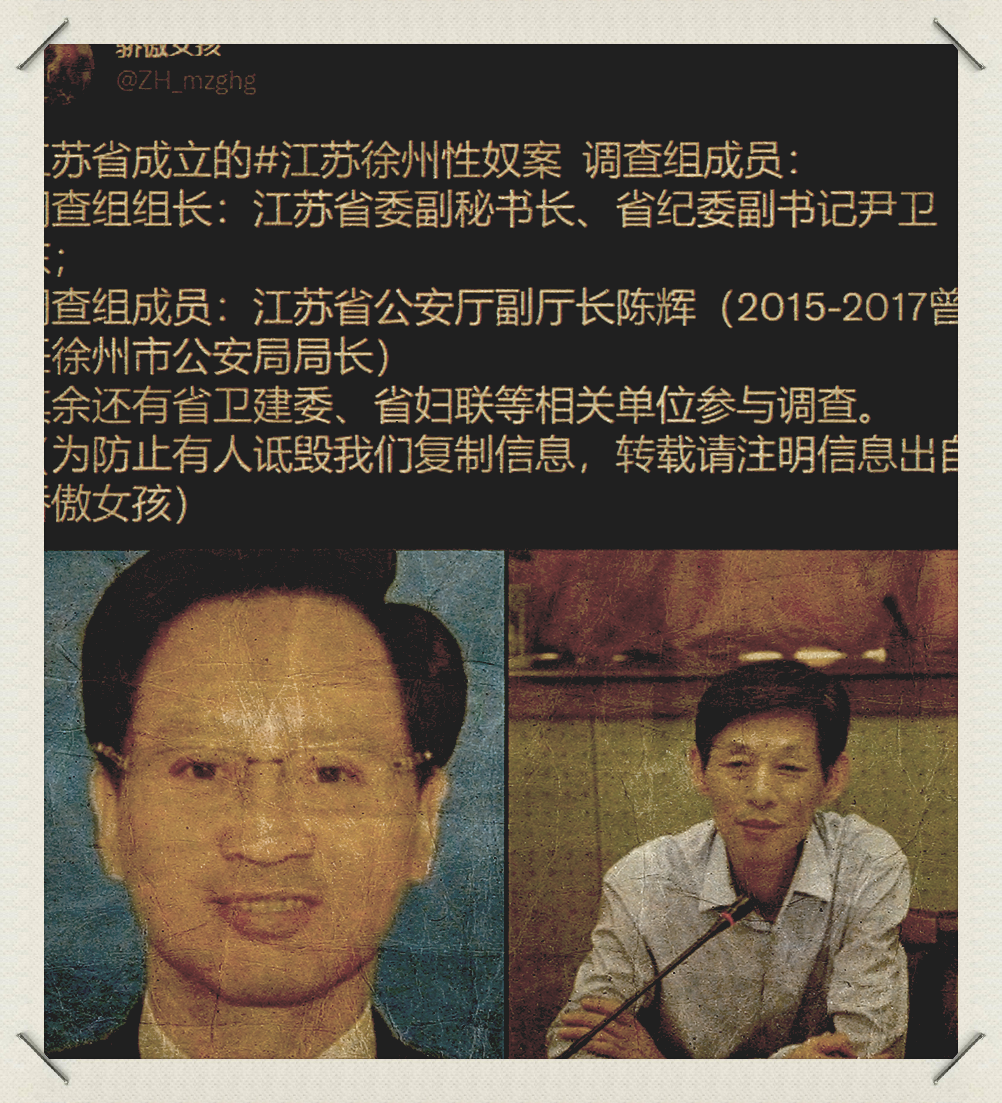 骄傲女孩
@ZH_mzghg
苏省成立的#江苏徐州性奴案 调查组成员：
查组组长：江苏省委副秘书长、省纪委副书记尹卫
；
查组成员：江苏省公安厅副厅长陈辉（2015-2017曾
徐州市公安局局长）
余还有省卫建委、省妇联等相关单位参与调查。
为防止有人诋毁我们复制信息，转载请注明信息出自
傲女孩）